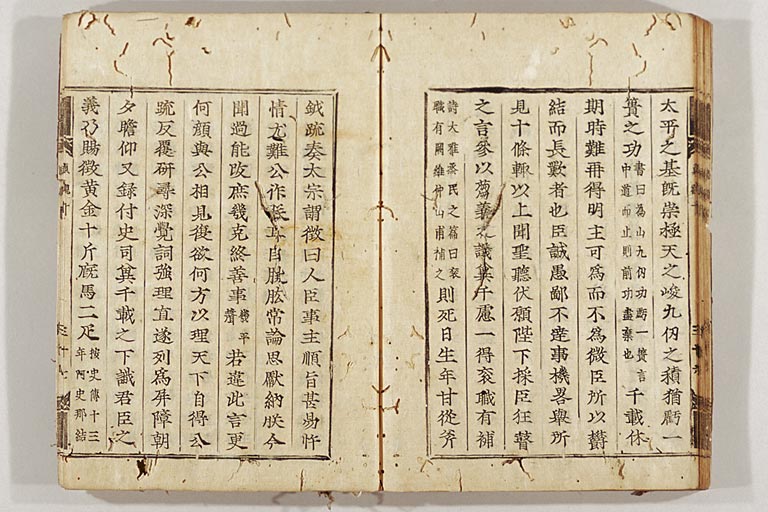 太平之基既崇極天之峻九仞之積猶虧一
簣之功書曰為山九仞功虧一簣言中道而止則前功盡棄也千載休
期時難再得明主可為而不為微臣所以鬱
結而長歎者也臣誠愚鄙不達事機畧舉所
見十條輒以上聞聖聽伏願陛下採臣狂瞽
之言參以蒭蕘之議冀千慮一得袞職有補
詩大雅烝民之篇曰袞職有闕維仲山甫補之則死日生年甘從斧
鉞疏奏太宗謂徵曰人臣事主順旨甚易忤
情尤難公作朕耳目股肱常論思獻納朕今
聞過能改庶幾克終善事若違此言更
何顔與公相見復欲何方以理天下自得公
疏反覆研尋深覺詞強理直遂列為屏障朝
夕瞻仰又録付史司冀千載之下識君臣之
義乃賜徵黃金十斤廐馬二疋按史傳十三年阿史那結